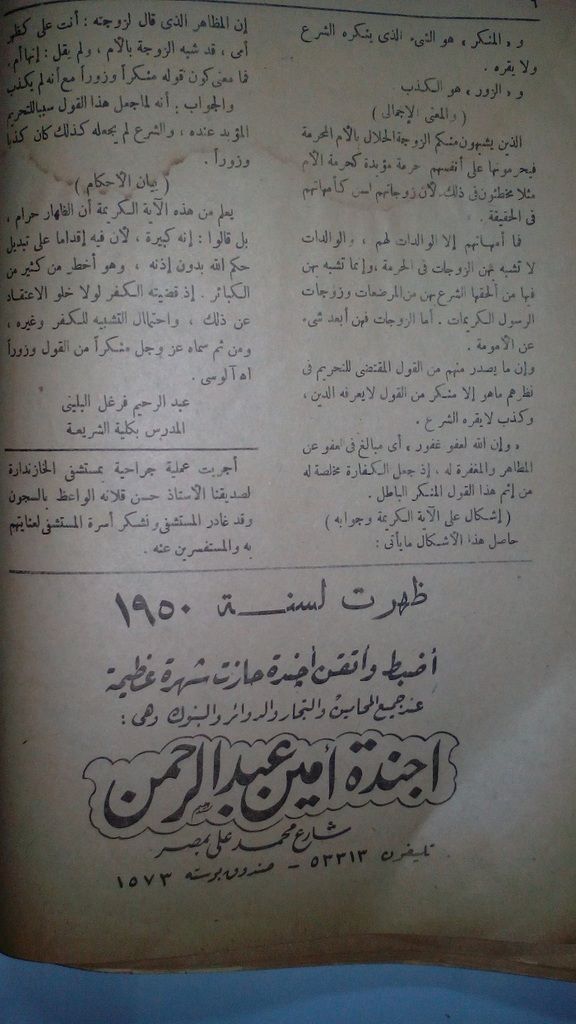 ٦
و « المنكر » هو الشيء الذى ينكره الشرع
ولا يقره .
و « الزور » هو الكذب .
( والمعنى الإجمالى )
الذين يشبهون منكم الزوجة الحلال بالأم المحرمة
فيحرمونها على أنفسهم حرمة مؤبدة كحرمة الأم
مثلا مخطئون فى ذلك لأن زوجاتهم لسن كأمهاتهم
فى الحقيقة .
فما أمهاتهم إلا الوالدات لهم ، والوالدات
لا تشبه بهن الزوجات فى الحرمة ، وإنما تشبه بهن
فيها من ألحقها الشرع بهن من المرضعات وزوجات
الرسول الكريمات . أما الزوجات فهن أبعد شىء
عن الأمومة .
وإن ما يصدر منهم من القول المقتضى للتحريم فى
نظرهم ماهو إلا منكر من القول لايعرفه الدين ،
وكذب لايقره الشرع .
« وإن الله لعفو غفور » أى مبالغ فى العفو عن
المظاهر والمغفرة له ، إذ جعل الكفارة مخلصة له
من إثم هذا القول المنكر الباطل .
( إشكال على الآية الكريمة وجوابه )
حاصل هذا الأشكال مايأتى :
إن المظاهر الذى قال لزوجته : أنت على كظهر
أمى ، قد شبه الزوجة بالأم ، ولم يقل : إنها أم .
فما معنى كون قوله منكراً وزوراً مع أنه لم يكذب
والجواب : أنه لما جعل هذا القول سببا للتحريم
المؤبد عنده ، والشرع لم يجعله كذلك كان كذبا
وزوراً .
( بيان الأحكام )
يعلم من هذه الآية الكريمة أن الظهار حرام ،
بل قالوا : إنه كبيرة ، لأن فيه إقداما على تبديل
حكم الله بدون إذنه ، وهو أخطر من كثير من
الكبائر . إذ قضيته الكفر لولا خلو الاعتقاد
عن ذلك ، واحتمال التشبيه للكفر وغيره ،
ومن ثم سماه عز وجل منكراً من القول وزوراً
اه آلوسى .
عبد الرحيم فرغل البلينى
المدرس بكلية الشريعة
أجريت عملية جراحية بمستشفى الخازندارة
لصديقنا الأستاذ حسن قلاته الواعظ بالسجون
وقد غادر المستشفى ونشكر أسرة المستشفى لعنايتهم
به والمستفسرين عنه .
ظهرت لسنة ١٩٥٠
أضبط وأتقن أجندة حازت شهرة عظيمة
عند جميع المحامين والتجار والدوائر والبنوك وهى :
اجندة أمين عبد الرحمن
شارع محمد على بمصر
تليفون ٥٣٣١٣ - صندوق بوسته ١٥٧٣